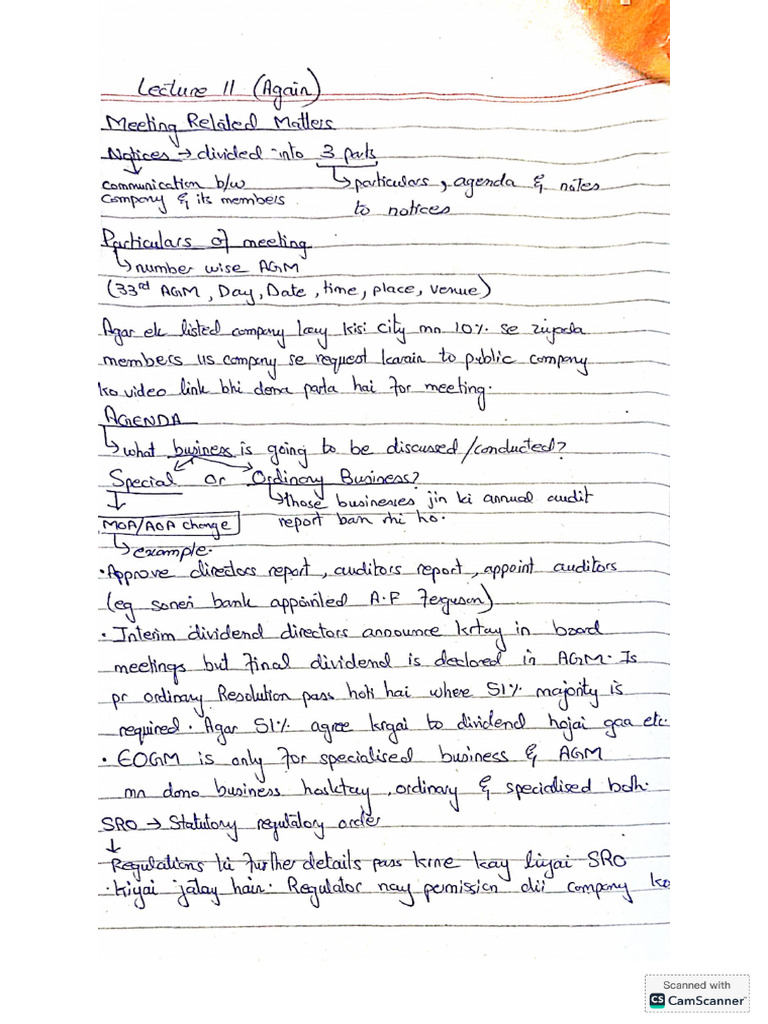 Lecture 11 (Again)
Meeting Related Matters
Notices → divided into 3 parts
communication b/w
Company & its members
particulars, agenda & notes
to notices
Particulars of meeting
number wise AGM
(33rd AGM, Day, Date, time, place, venue)
Agar ek listed company kay kisi city mn 10% se ziyada
members us company se request karain to public company
ko video link bhi dena parta hai for meeting.
AGENDA
what business is going to be discussed/conducted?
Special or Ordinary Business?
those businesses jin ki annual audit
report ban rhi ho.
MOA/AOA change
example.
• Approve directors report, auditors report, appoint auditors
(eg soneri bank appointed A.F Ferguson)
• Interim dividend directors announce krtay in board
meetings but Final dividend is declared in AGM. Is
pr ordinary Resolution pass hoti hai where 51% majority is
required. Agar 51% agree krgai to dividend hojai gaa etc.
• EOGM is only for specialised business & AGM
mn dono business hosktay, ordinary & specialised both.
SRO → Statutory regulatory order
Regulations ki further details pass krne kay liyai SRO
kiyai jatay hain. Regulator nay permission dii company ko
Scanned with
CS CamScanner